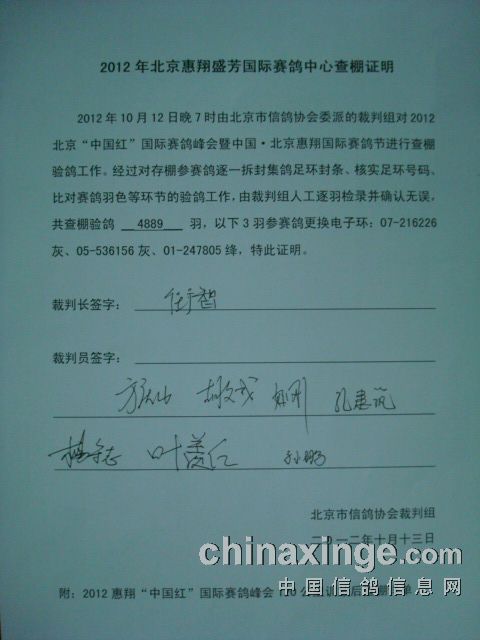 2012年北京惠翔盛芳国际赛鸽中心查棚证明
2012年10月12日晚7时由北京市信鸽协会委派的裁判组对2012
北京“中国红”国际赛鸽峰会暨中国·北京惠翔国际赛鸽节进行查棚
验鸽工作。经过对存棚参赛鸽逐一拆封集鸽足环封条、核实足环号码、
比对赛鸽羽色等环节的验鸽工作，由裁判组人工逐羽检录并确认无误，
共查棚验鸽 4889 羽，以下3羽参赛鸽更换电子环：07-216226
灰、05-536156灰、01-247805绛，特此证明。
裁判长签字：
裁判员签字：
孔建筑
叶
孙鹏
北京市信鸽协会裁判组
二〇一二年十月十三日
chinaxinge.com
中国信鸽信息网
附：2012惠翔“中国红”国际赛鸽峰会